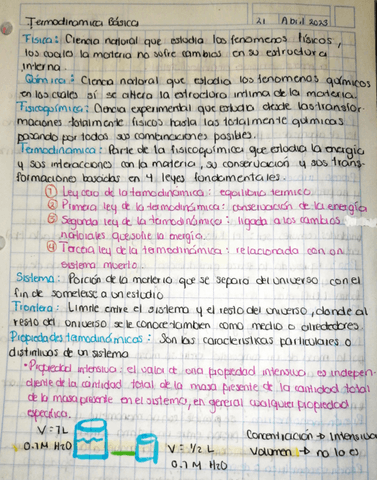 Termodinamica Básica
21 Abril 2023
Física: Ciencia natural que estudia los fenomenos físicos,
los cuales la materia no sufre cambios en su estructura
interna.
Química: Ciencia natural que estudia los fenomenos químicos
en los cuales sí se altera la estructura intima de la materia.
Fisicoquímica: Ciencia experimental que estudia desde las transfor-
maciones totalmente físicos hasta las totalmente químicas
pasando por todas sus combinaciones posibles.
Termodinamica: Parte de la fisicoquímica que estudia la energía
y sus interacciones con la materia, su conservación y sus trans-
formaciones basadas en 4 leyes fundamentales.
① Ley cero de la termodinámica: equilibrio termico.
② Primera ley de la termodinámica: conservación de la energía
③ Segunda ley de la termodinámica: ligada a los cambios
naturales que sufre la energía.
④ Tercera ley de la termodinamica: relacionada con un
sistema muerto.
Sistema: Porción de la materia que se separa del universo con el
fin de someterse a un estudio
Frontera: Limite entre el sistema y el resto del universo, donde al
resto del universo se le conoce tambien como medio o alrededores.
Propiedades termodinámicas: Son las características particulares o
distintivas de un sistema
• Propiedad intensiva: el valor de una propiedad intensiva es indepen-
diente de la cantidad total de la masa presente de la cantidad total
de la masa presente en el sistema, en general cualquier propiedad
especifica.
V = 1L
0.1M H2O
V = 1/2 L
0.1 M H2O
Concentración → Intensiva
Volumen → no lo es